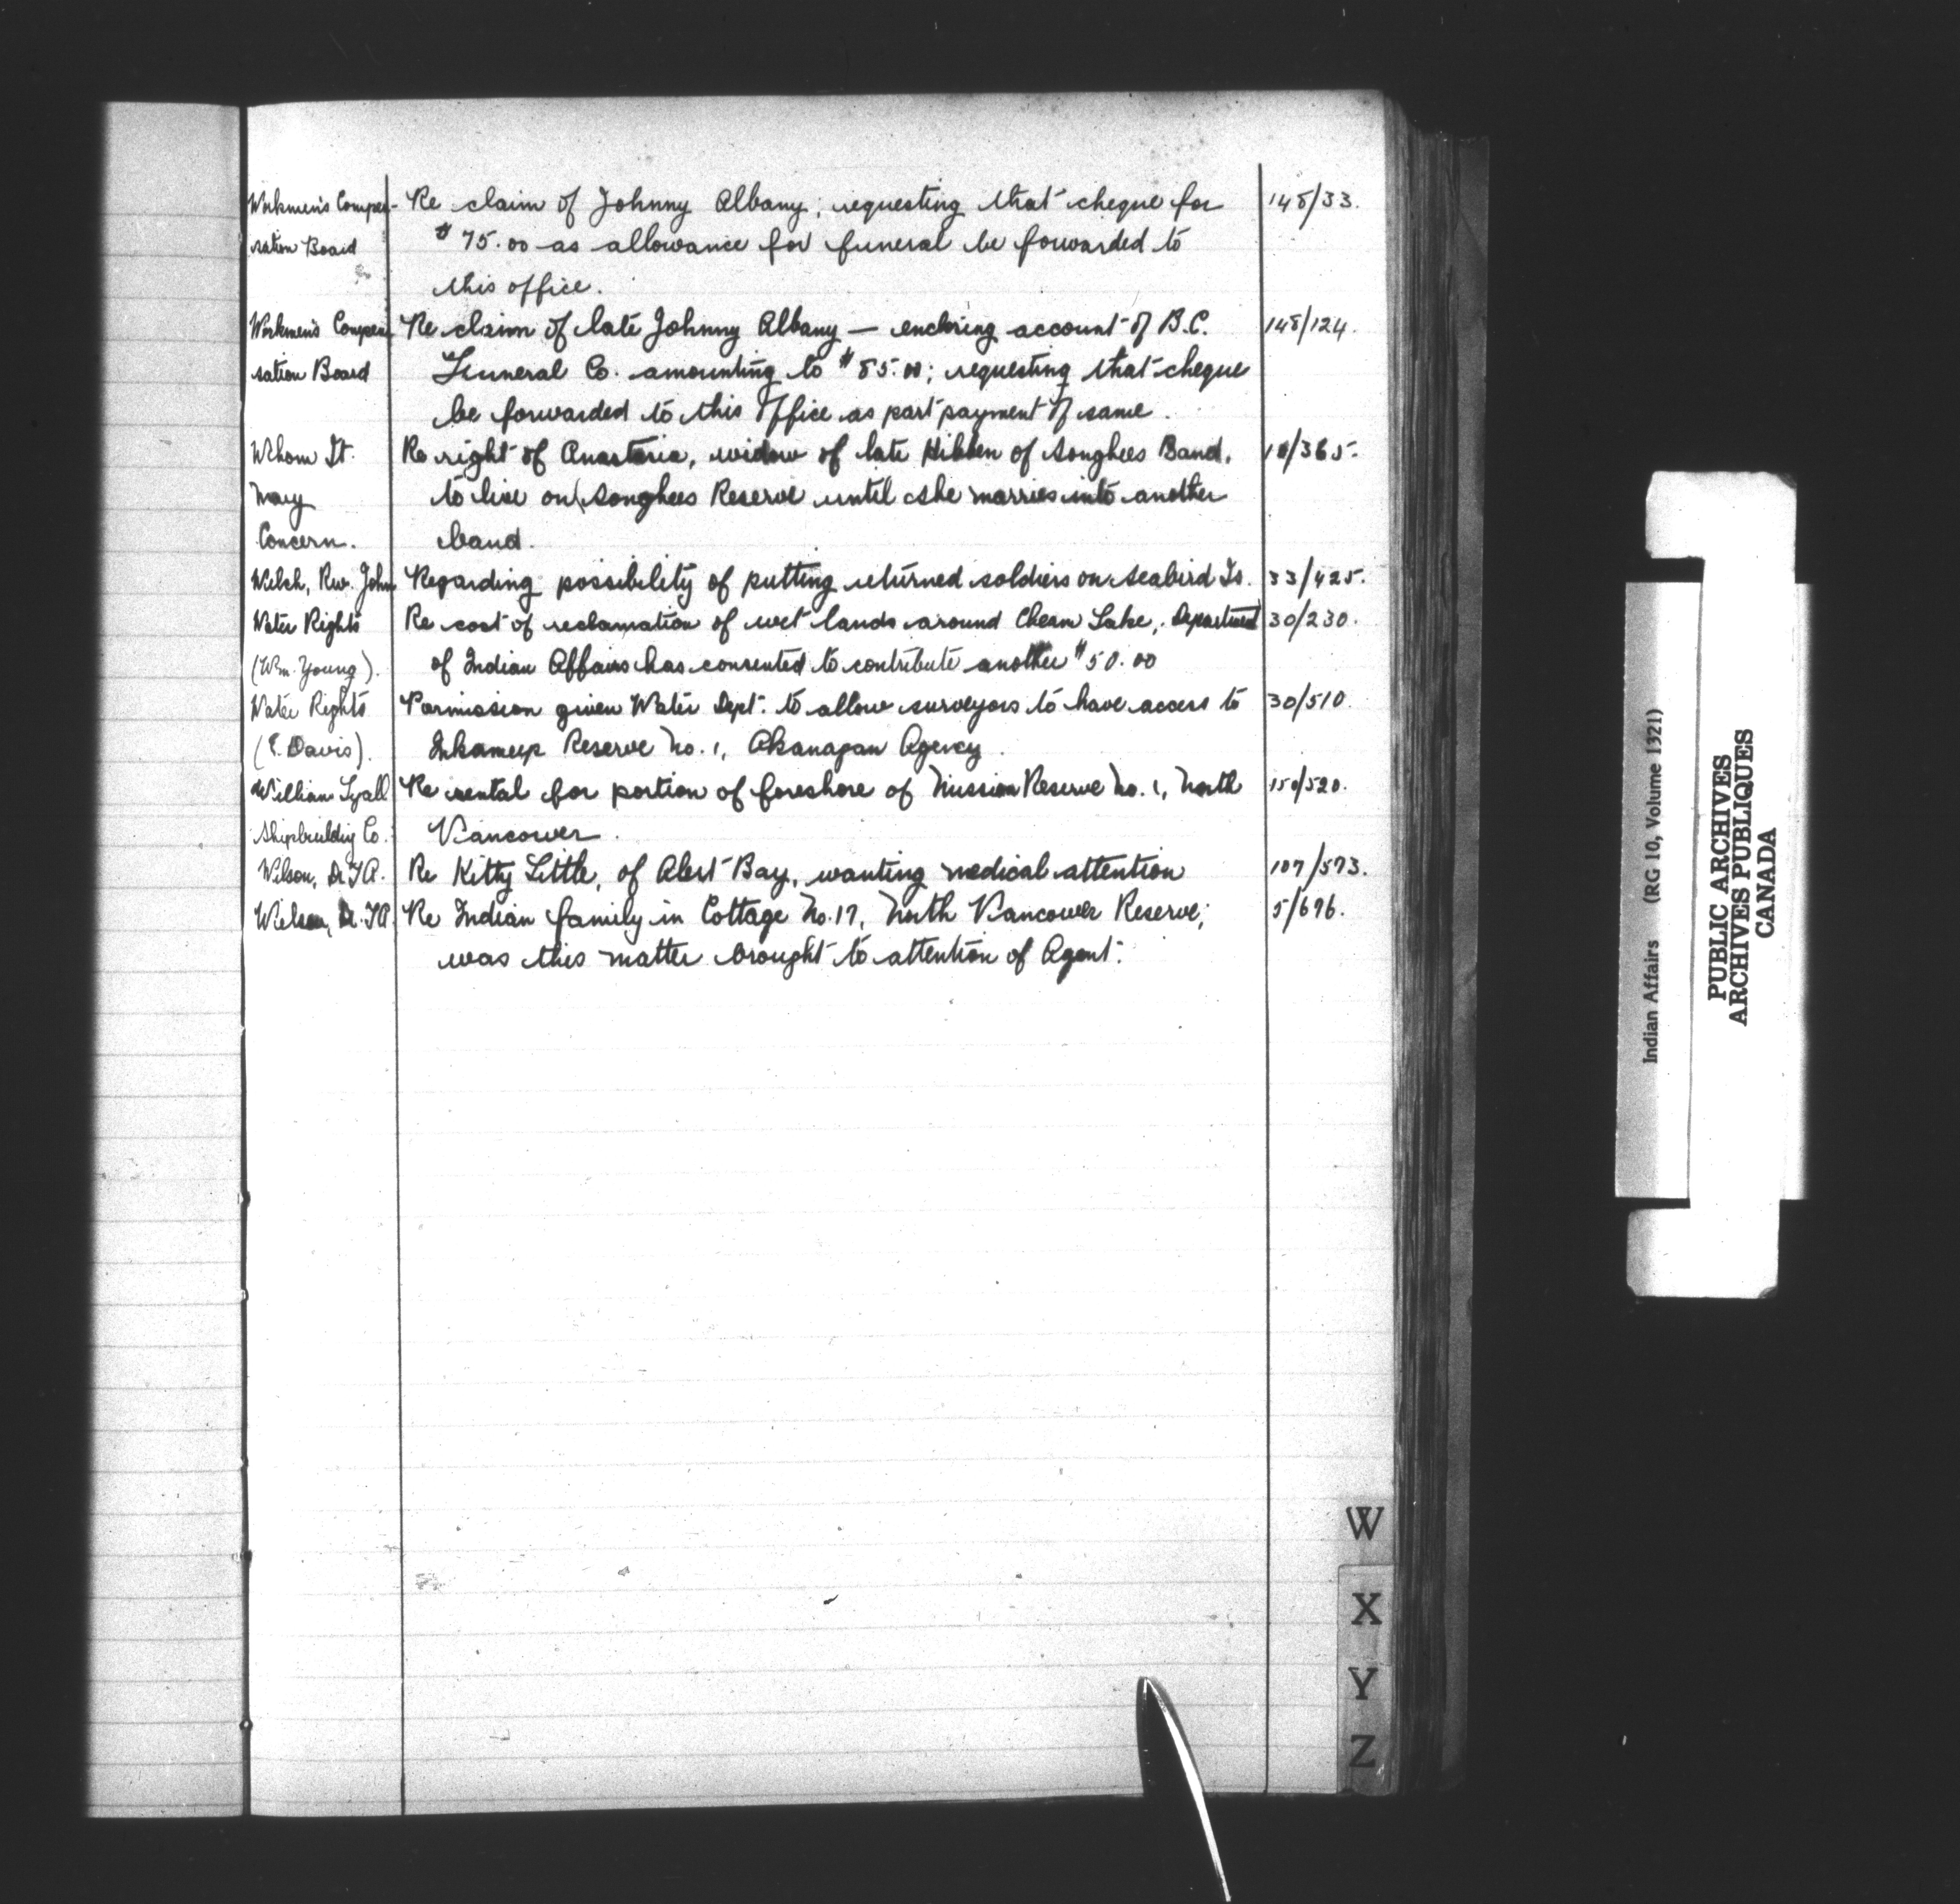 Workmen's Compen- Re claim of Johnny Albany; requesting that cheque for 148/33.
sation Board $75.00 as allowance for funeral be forwarded to
this office.
Workmen's Compen Re claim of late Johnny Albany — enclosing account of B.C. 148/124.
sation Board Funeral Co. amounting to $85.00; requesting that cheque
be forwarded to this office as part payment of same.
Whom It Re right of Anastasia, widow of late Hibben of Songhees Band, 18/365.
May to live on Songhees Reserve until she marries into another
Concern. band.
Welch, Rev. John Regarding possibility of putting returned soldiers on Seabird Is. 33/425.
Water Rights Re cost of reclamation of wet lands around Cheam Lake; Department 30/230.
(Wm. Young). of Indian Affairs has consented to contribute another $50.00
Water Rights Permission given Water Dept. to allow surveyors to have access to 30/510.
(E. Davis). Inkameep Reserve No. 1, Okanagan Agency.
William Lyall Re rental for portion of foreshore of Mission Reserve No. 1, North 150/520.
Shipbuilding Co. Vancouver.
Wilson, Dr. Re Kitty Little, of Alert Bay, wanting medical attention 107/573.
Wilson, Dr. Re Indian family in Cottage No. 17, North Vancouver Reserve; 5/676.
was this matter brought to attention of Agent.
W
X
Y
Z
Indian Affairs (RG 10, Volume 1321)
PUBLIC ARCHIVES
ARCHIVES PUBLIQUES
CANADA